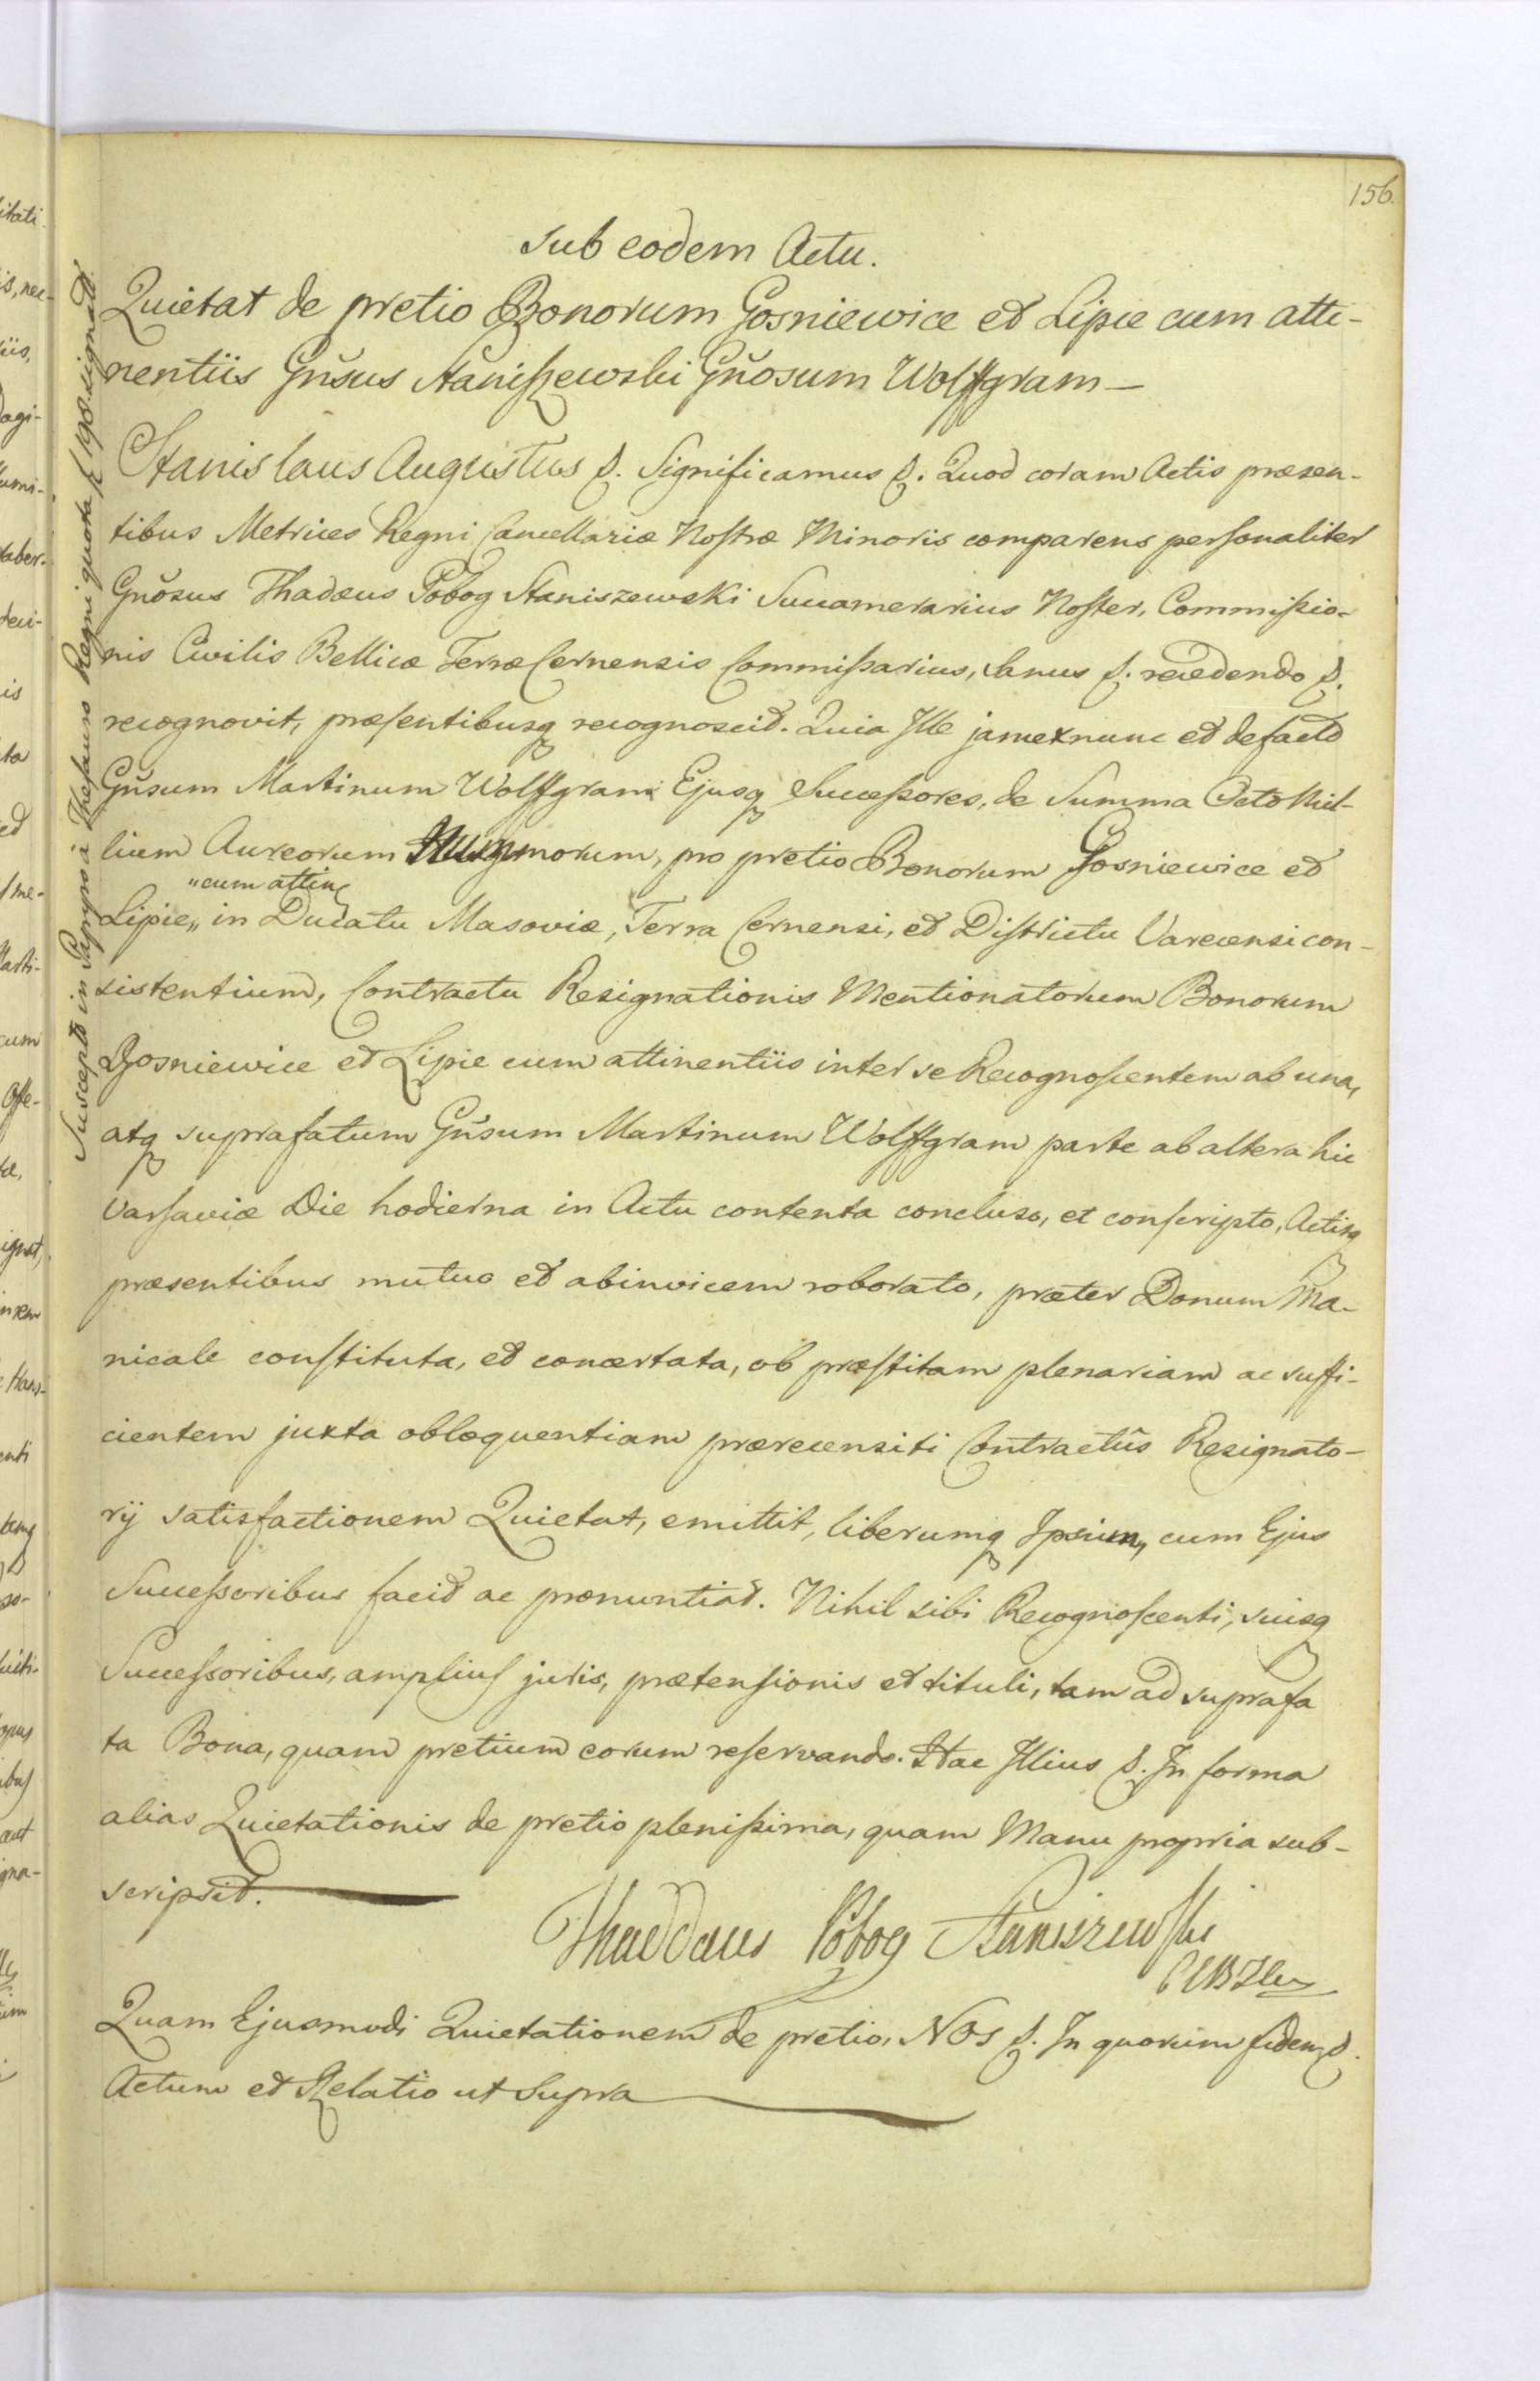 156.
Sub eodem Actu.
Quietat de pretio Bonorum Gosniewice et Lipie cum atti-
nentiis Gnsus Staniszewski Gnosum Wolffgram —
Stanislaus Augustus &. Significamus &. Quod coram Actis præsen-
tibus Metrices Regni Cancellariæ Nostræ Minoris comparens personaliter
Gnosus Thadæus Pobog Staniszewski Succamerarius Noster, Commissio-
nis Civilis Bellicæ Terræ Cernensis Commissarius, Sanus &. recedendo &.
recognovit, præsentibusq recognoscit. Quia Ille jam exnunc et defacto
Gnsum Martinum Wolffgram Ejusq Successores, de Summa Octo Mil-
lium Aureorum Nummorum, pro pretio Bonorum Gosniewice et
"cum attin
Lipie,, in Ducatu Masoviæ, Terra Cernensi, et Districtu Varecensi con-
sistentium, Contractu Resignationis Mentionatorum Bonorum
Gosniewice et Lipie cum attinentiis inter se Recognoscentem ab una,
atq suprafatum Gnsum Martinum Wolffgram parte ab altera hic
Varsaviæ Die hodierna in Actu contenta concluso, et conscripto, Actisq
præsentibus mutuo et abinvicem roborato, præter Donum Ma-
nicale constituta, et concertata, ob præstitam plenariam ac suffi-
cientem juxta obloquentiam prærecensiti Contractûs Resignato-
rij satisfactionem Quietat, emittit, liberumq Ipsum, cum Ejus
Successoribus facit ac pronuntiat. Nihil sibi Recognoscenti, suisq
Successoribus, amplius juris, prætensionis et tituli, tam ad suprafa
ta Bona, quam pretium eorum reservando. Hac Illius &. In forma
alias Quietationis de pretio plenissima, quam Manu propria sub-
scripsit.
Thaddæus Pobog Staniszewski
Quam Ejusmodi Quietationem de pretio, NOS &. In quorum fidem &.
Actum et Relatio ut Supra
Suscepto in Papyro à Thesauro Regni quota f 198. signatto